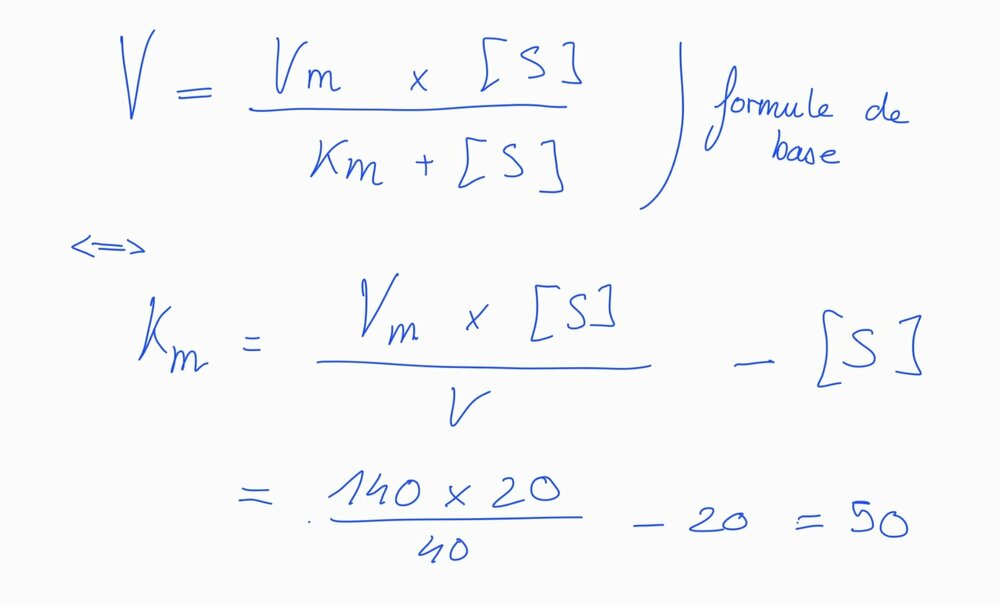 V = Vm x [S] / Km + [S] ) formule de base
<=>
Km = Vm x [S] / V - [S]
= 140 x 20 / 40 - 20 = 50